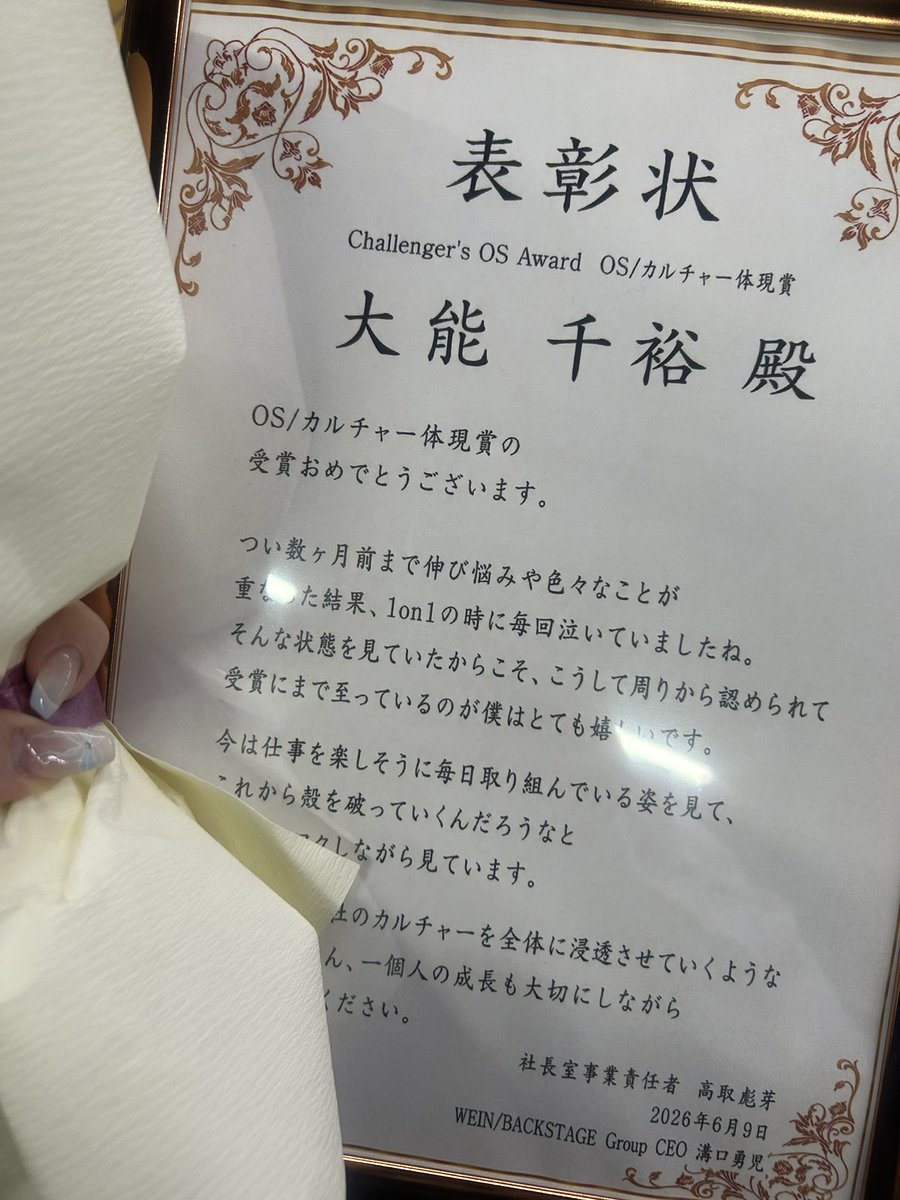 表彰状
Challenger's OS Award OS/カルチャー体現賞
大能 千裕 殿
OS/カルチャー体現賞の
受賞おめでとうございます。
つい数ヶ月前まで伸び悩みや色々なことが
重なった結果、1on1の時に毎回泣いていましたね。
そんな状態を見ていたからこそ、こうして周りから認められて
受賞にまで至っているのが僕はとても嬉しいです。
今は仕事を楽しそうに毎日取り組んでいる姿を見て、
これから殻を破っていくんだろうなと
クしながら見ています。
社のカルチャーを全体に浸透させていくような
ん、一個人の成長も大切にしながら
ください。
社長室事業責任者 高取彪芽
2026年6月9日
WEIN/BACKSTAGE Group CEO 溝口勇児